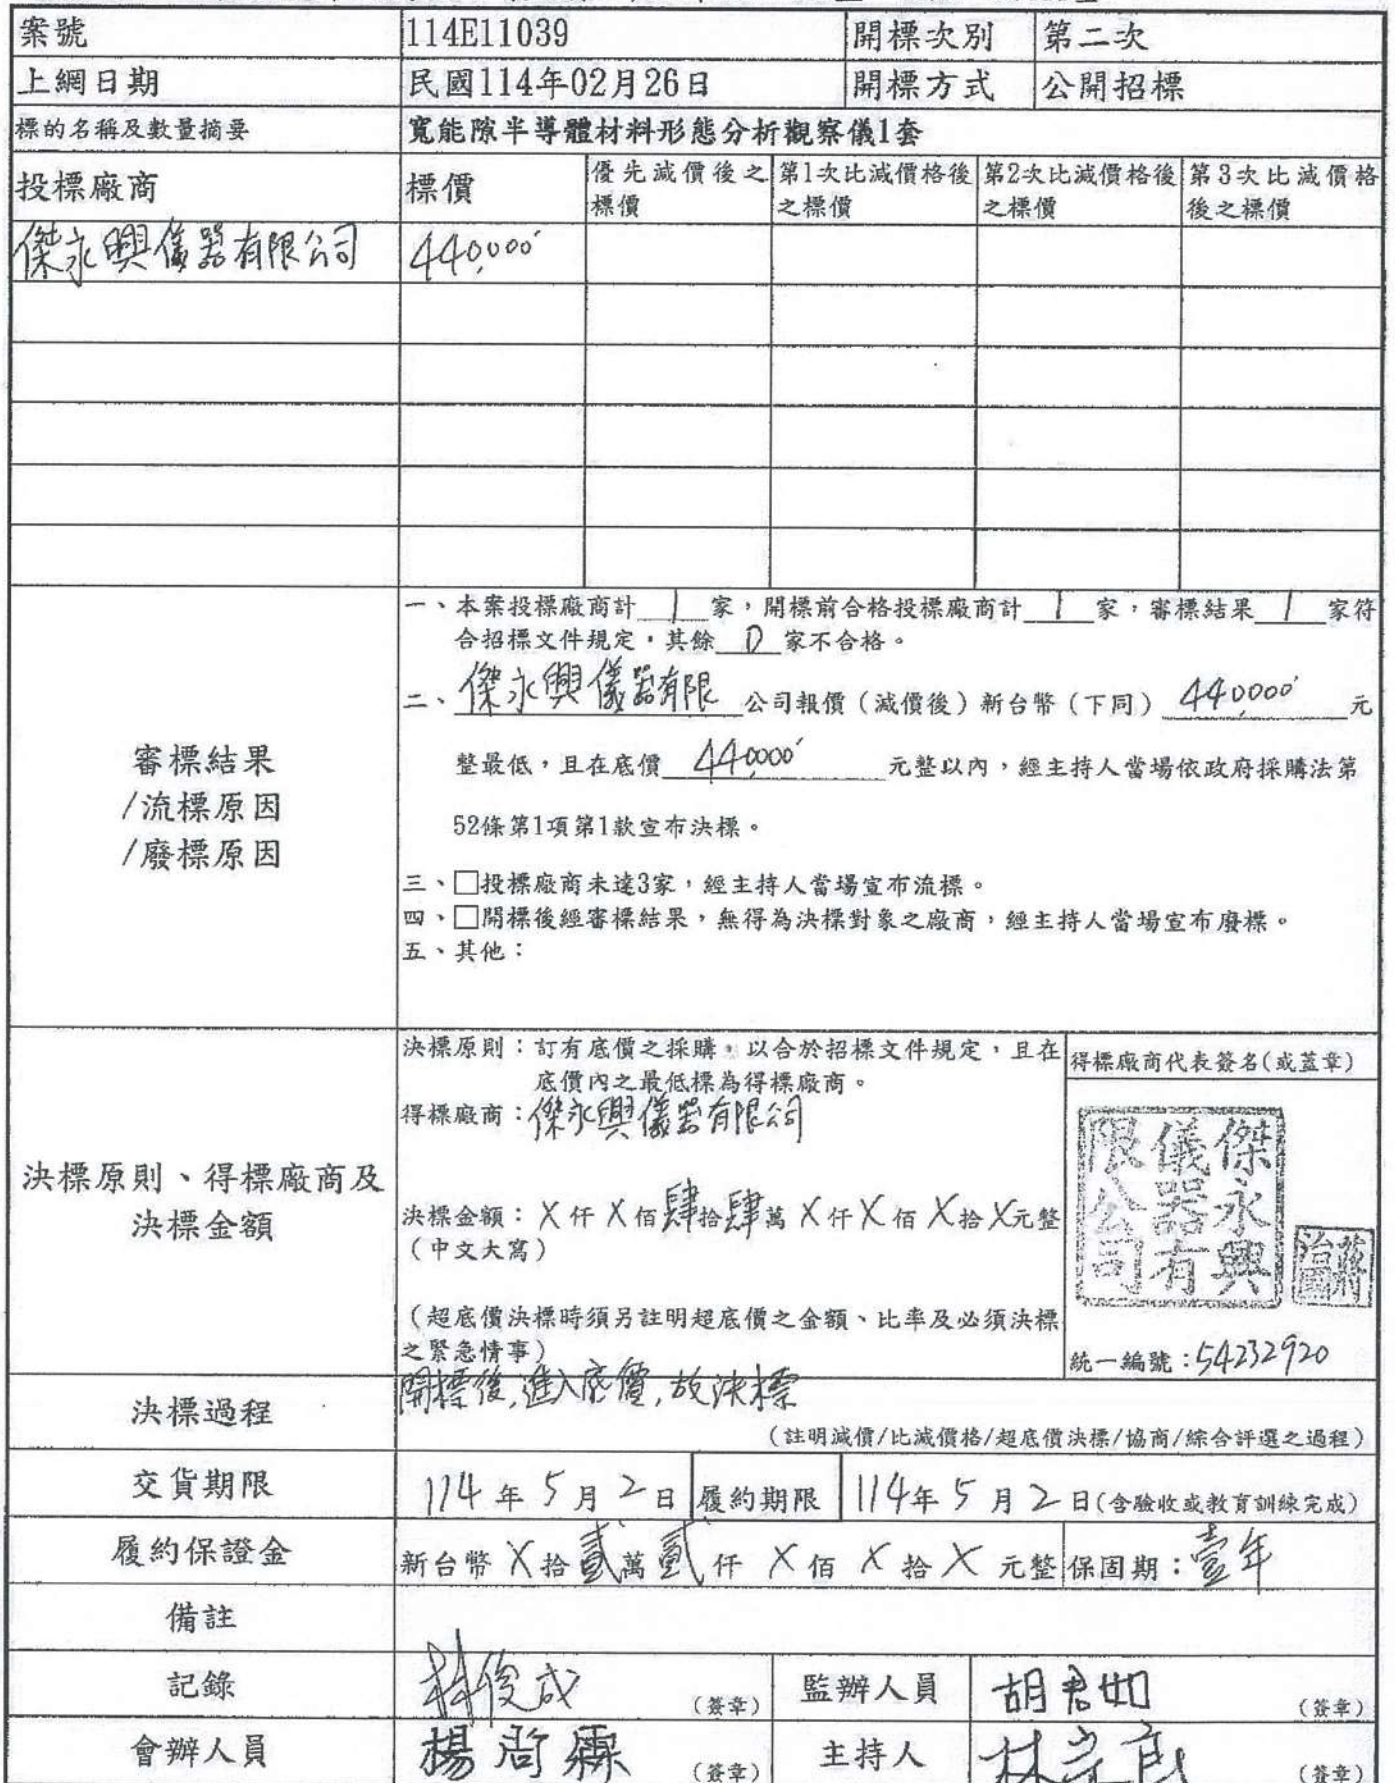 案號 114E11039 開標次別 第二次
上網日期 民國114年02月26日 開標方式 公開招標
標的名稱及數量摘要 寬能隙半導體材料形態分析觀察儀1套
投標廠商 標價 優先減價後之標價 第1次比減價格後之標價 第2次比減價格後之標價 第3次比減價格後之標價
傑永興儀器有限公司 440,000
審標結果
/流標原因
/廢標原因
一、本案投標廠商計 1 家,開標前合格投標廠商計 1 家,審標結果 1 家符
合招標文件規定,其餘 0 家不合格。
二、傑永興儀器有限 公司報價(減價後)新台幣(下同) 440,000 元
整最低,且在底價 440,000 元整以內,經主持人當場依政府採購法第
52條第1項第1款宣布決標。
三、□投標廠商未達3家,經主持人當場宣布流標。
四、□開標後經審標結果,無得為決標對象之廠商,經主持人當場宣布廢標。
五、其他:
決標原則、得標廠商及
決標金額
決標原則:訂有底價之採購,以合於招標文件規定,且在
底價內之最低標為得標廠商。
得標廠商:傑永興儀器有限公司
決標金額:X仟X佰肆拾肆萬X仟X佰X拾X元整
(中文大寫)
(超底價決標時須另註明超底價之金額、比率及必須決標
之緊急情事)
得標廠商代表簽名(或蓋章)
傑永興
儀器有
限公司
統一編號:54232920
決標過程 開標後,進入底價,故決標
(註明減價/比減價格/超底價決標/協商/綜合評選之過程)
交貨期限 114年5月2日 履約期限 114年5月2日(含驗收或教育訓練完成)
履約保證金 新台幣X拾貳萬貳仟X佰X拾X元整 保固期:壹年
備註
記錄 林俊成 (簽章) 監辦人員 胡君如 (簽章)
會辦人員 (簽章) 主持人 (簽章)